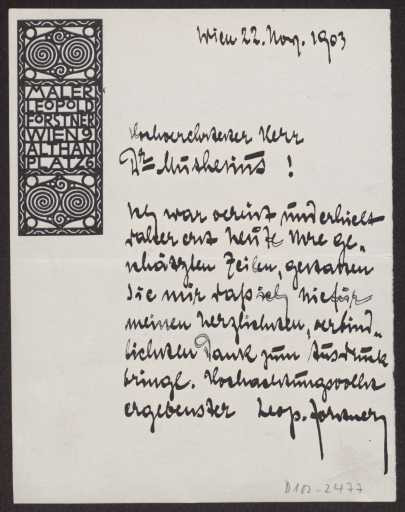 MALER
LEOPOLD
FORSTNER
WIEN 9
ALTHAN
PLATZ 6
Wien 22. Nov. 1903
Hochverehrtester Herr
Dr. Muthesius !
Ich war verreist und erhielt
daher erst heute Ihre ge-
schätzten Zeilen, gestatten
Sie mir daß ich hiefür
meinen herzlichsten, verbind-
lichsten Dank zum Ausdruck
bringe. Hochachtungsvollst
ergebenster Leop. Forstner
D102-2477